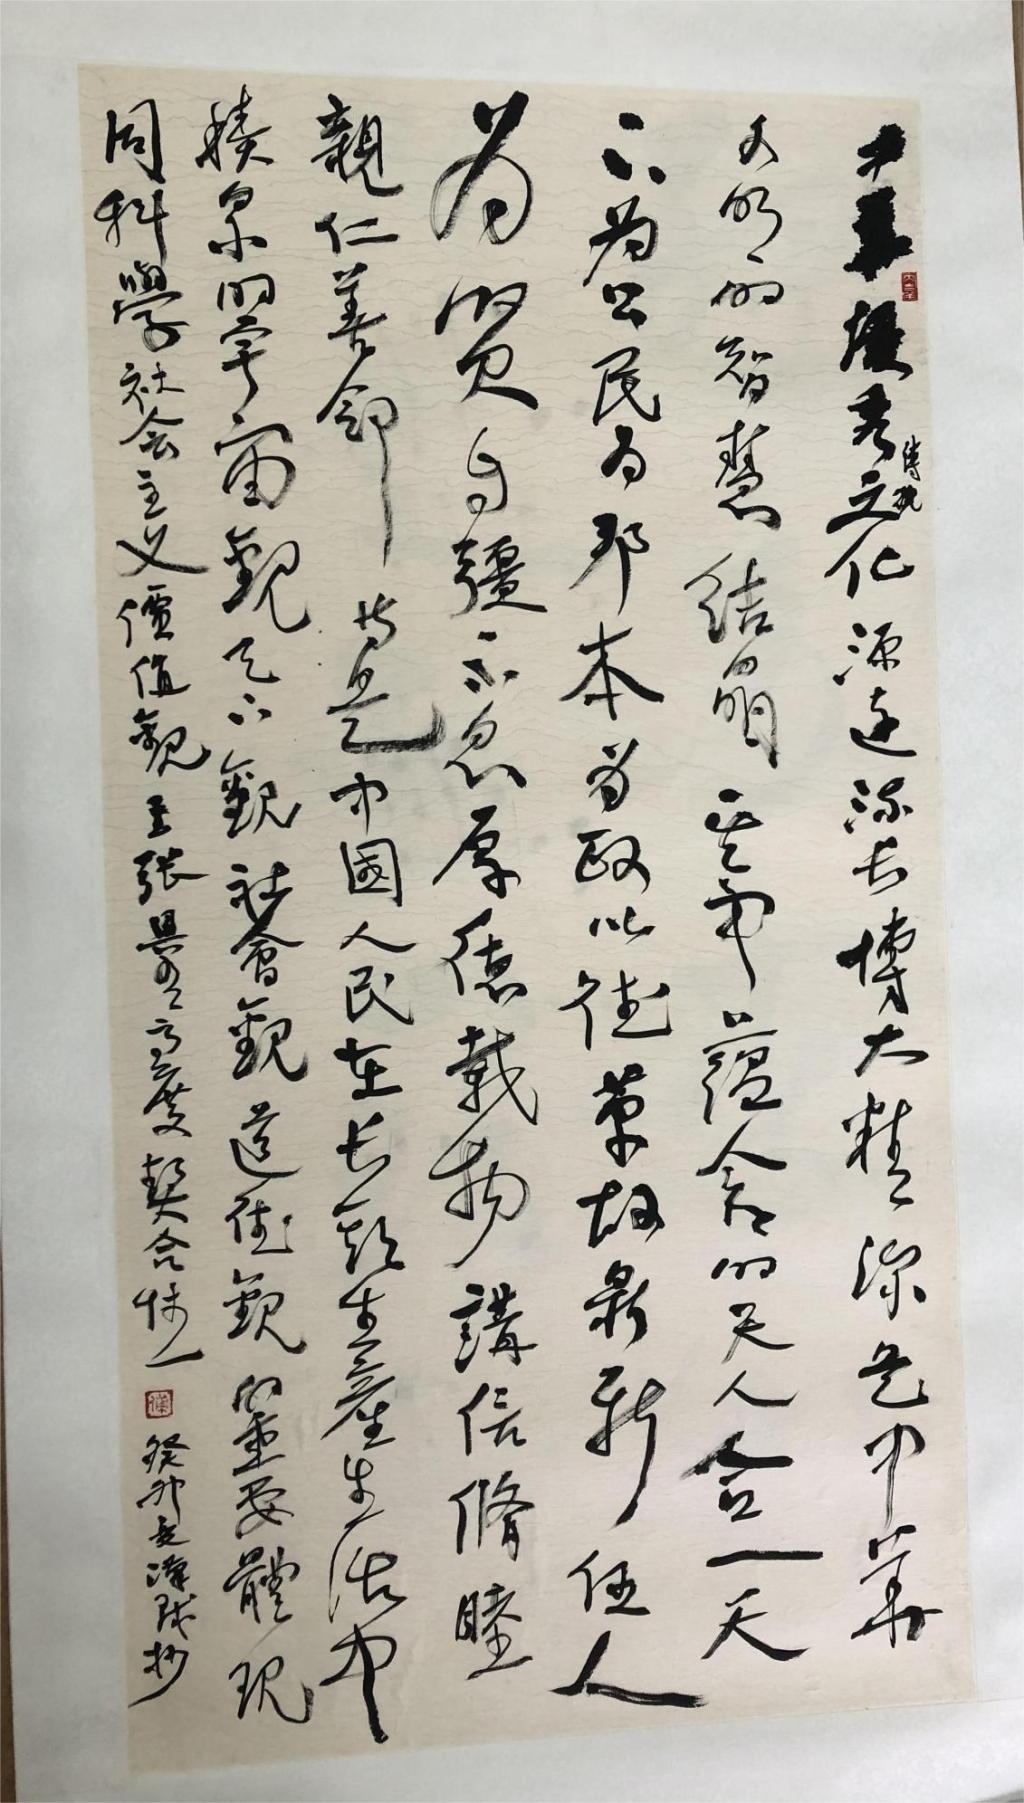 中華優秀文化源遠流长博大精深是中華
傳統
文明的智慧結晶其中蕴含的天人合一天
下為公民為邦本為政以德革故鼎新任人
為賢自彊不息厚德載物講信脩睦
親仁善鄰等是中國人民在长期生產生活中
積累的宇宙觀天下觀社會觀道德觀的重要體現
同科學社会主义價值觀主張具有高度契合性
癸卯 漢 抄